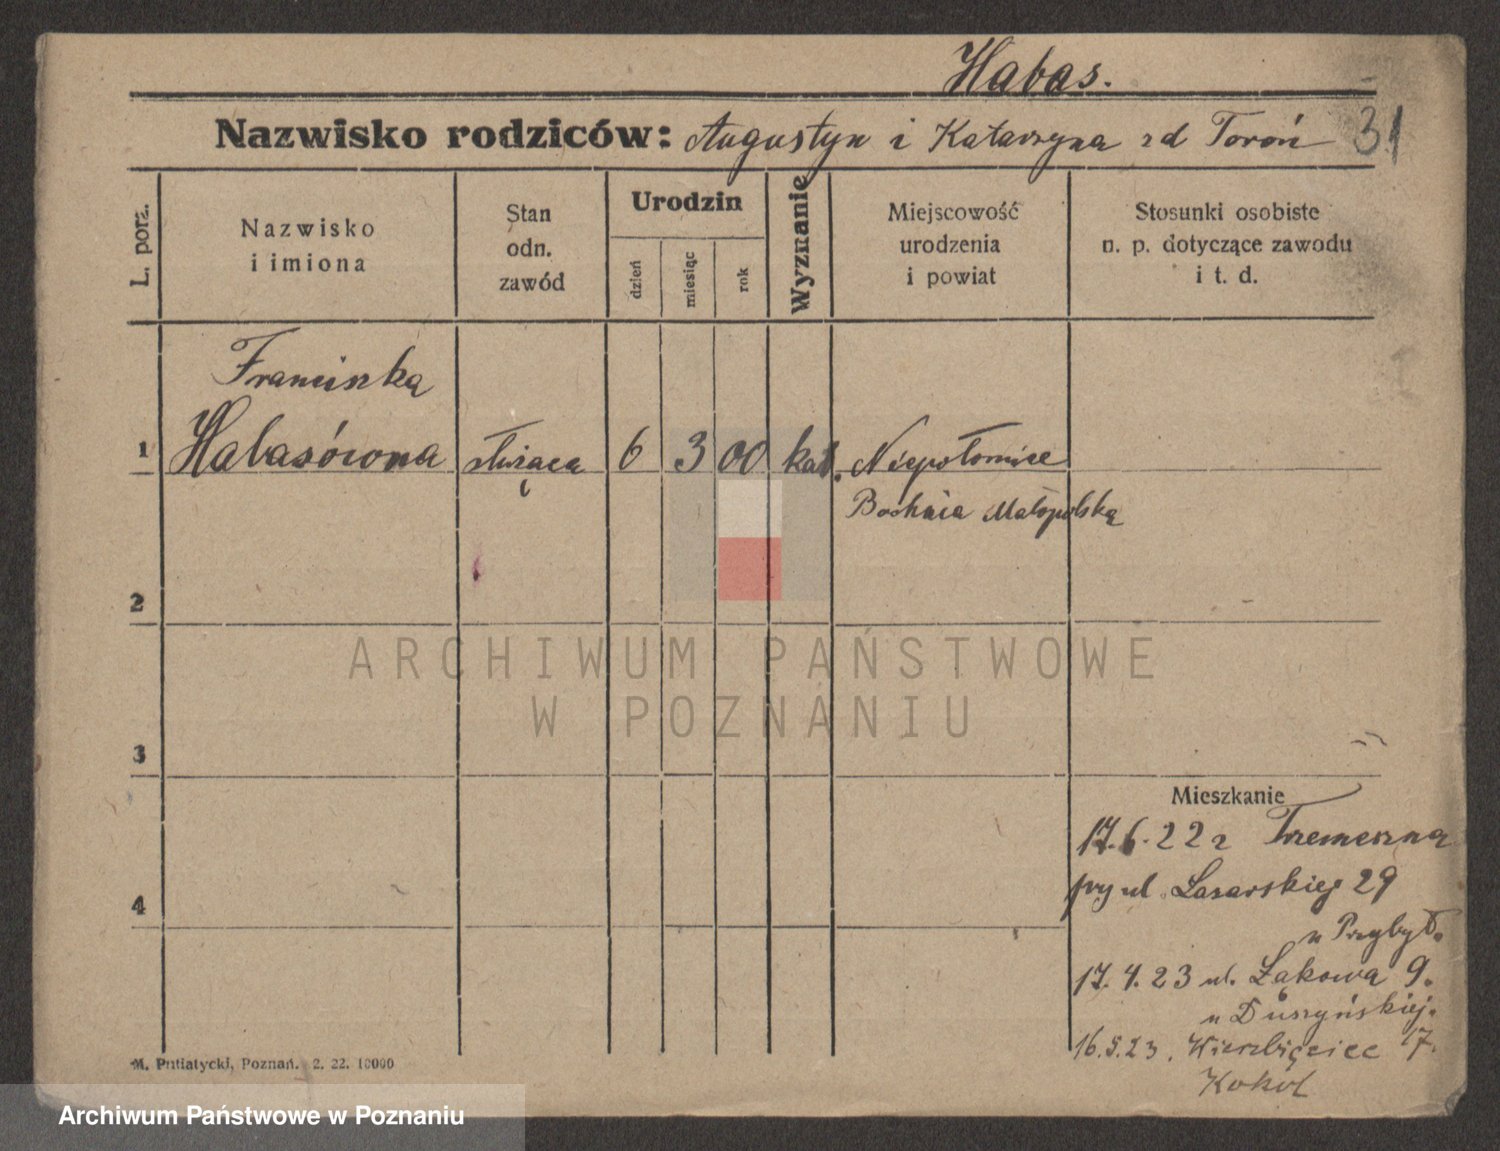 Habas.
Nazwisko rodziców: Augustyn i Katarzyna zd Toroń 31
L. porz.
Nazwisko
i imiona
Stan
odn.
zawód
Urodzin
dzień
miesiąc
rok
Wyznanie
Miejscowość
urodzenia
i powiat
Stosunki osobiste
n. p. dotyczące zawodu
i t. d.
Franciszka
1 Habasówna służąca 6 3 00 kat. Niepołomice
Bochnia Małopolska
2
3
4
Mieszkanie
17.6.22 z Trzemeszna
przy ul. Łazarskiej 29
u Przybył.
17.4.23 ul. Łąkowa 9.
u Duszyńskiej.
16.5.23. Wierzbięcice 17.
Kokot
M. Putiatycki, Poznań. 2. 22. 10000
ARCHIWUM PAŃSTWOWE
W POZNANIU
Archiwum Państwowe w Poznaniu